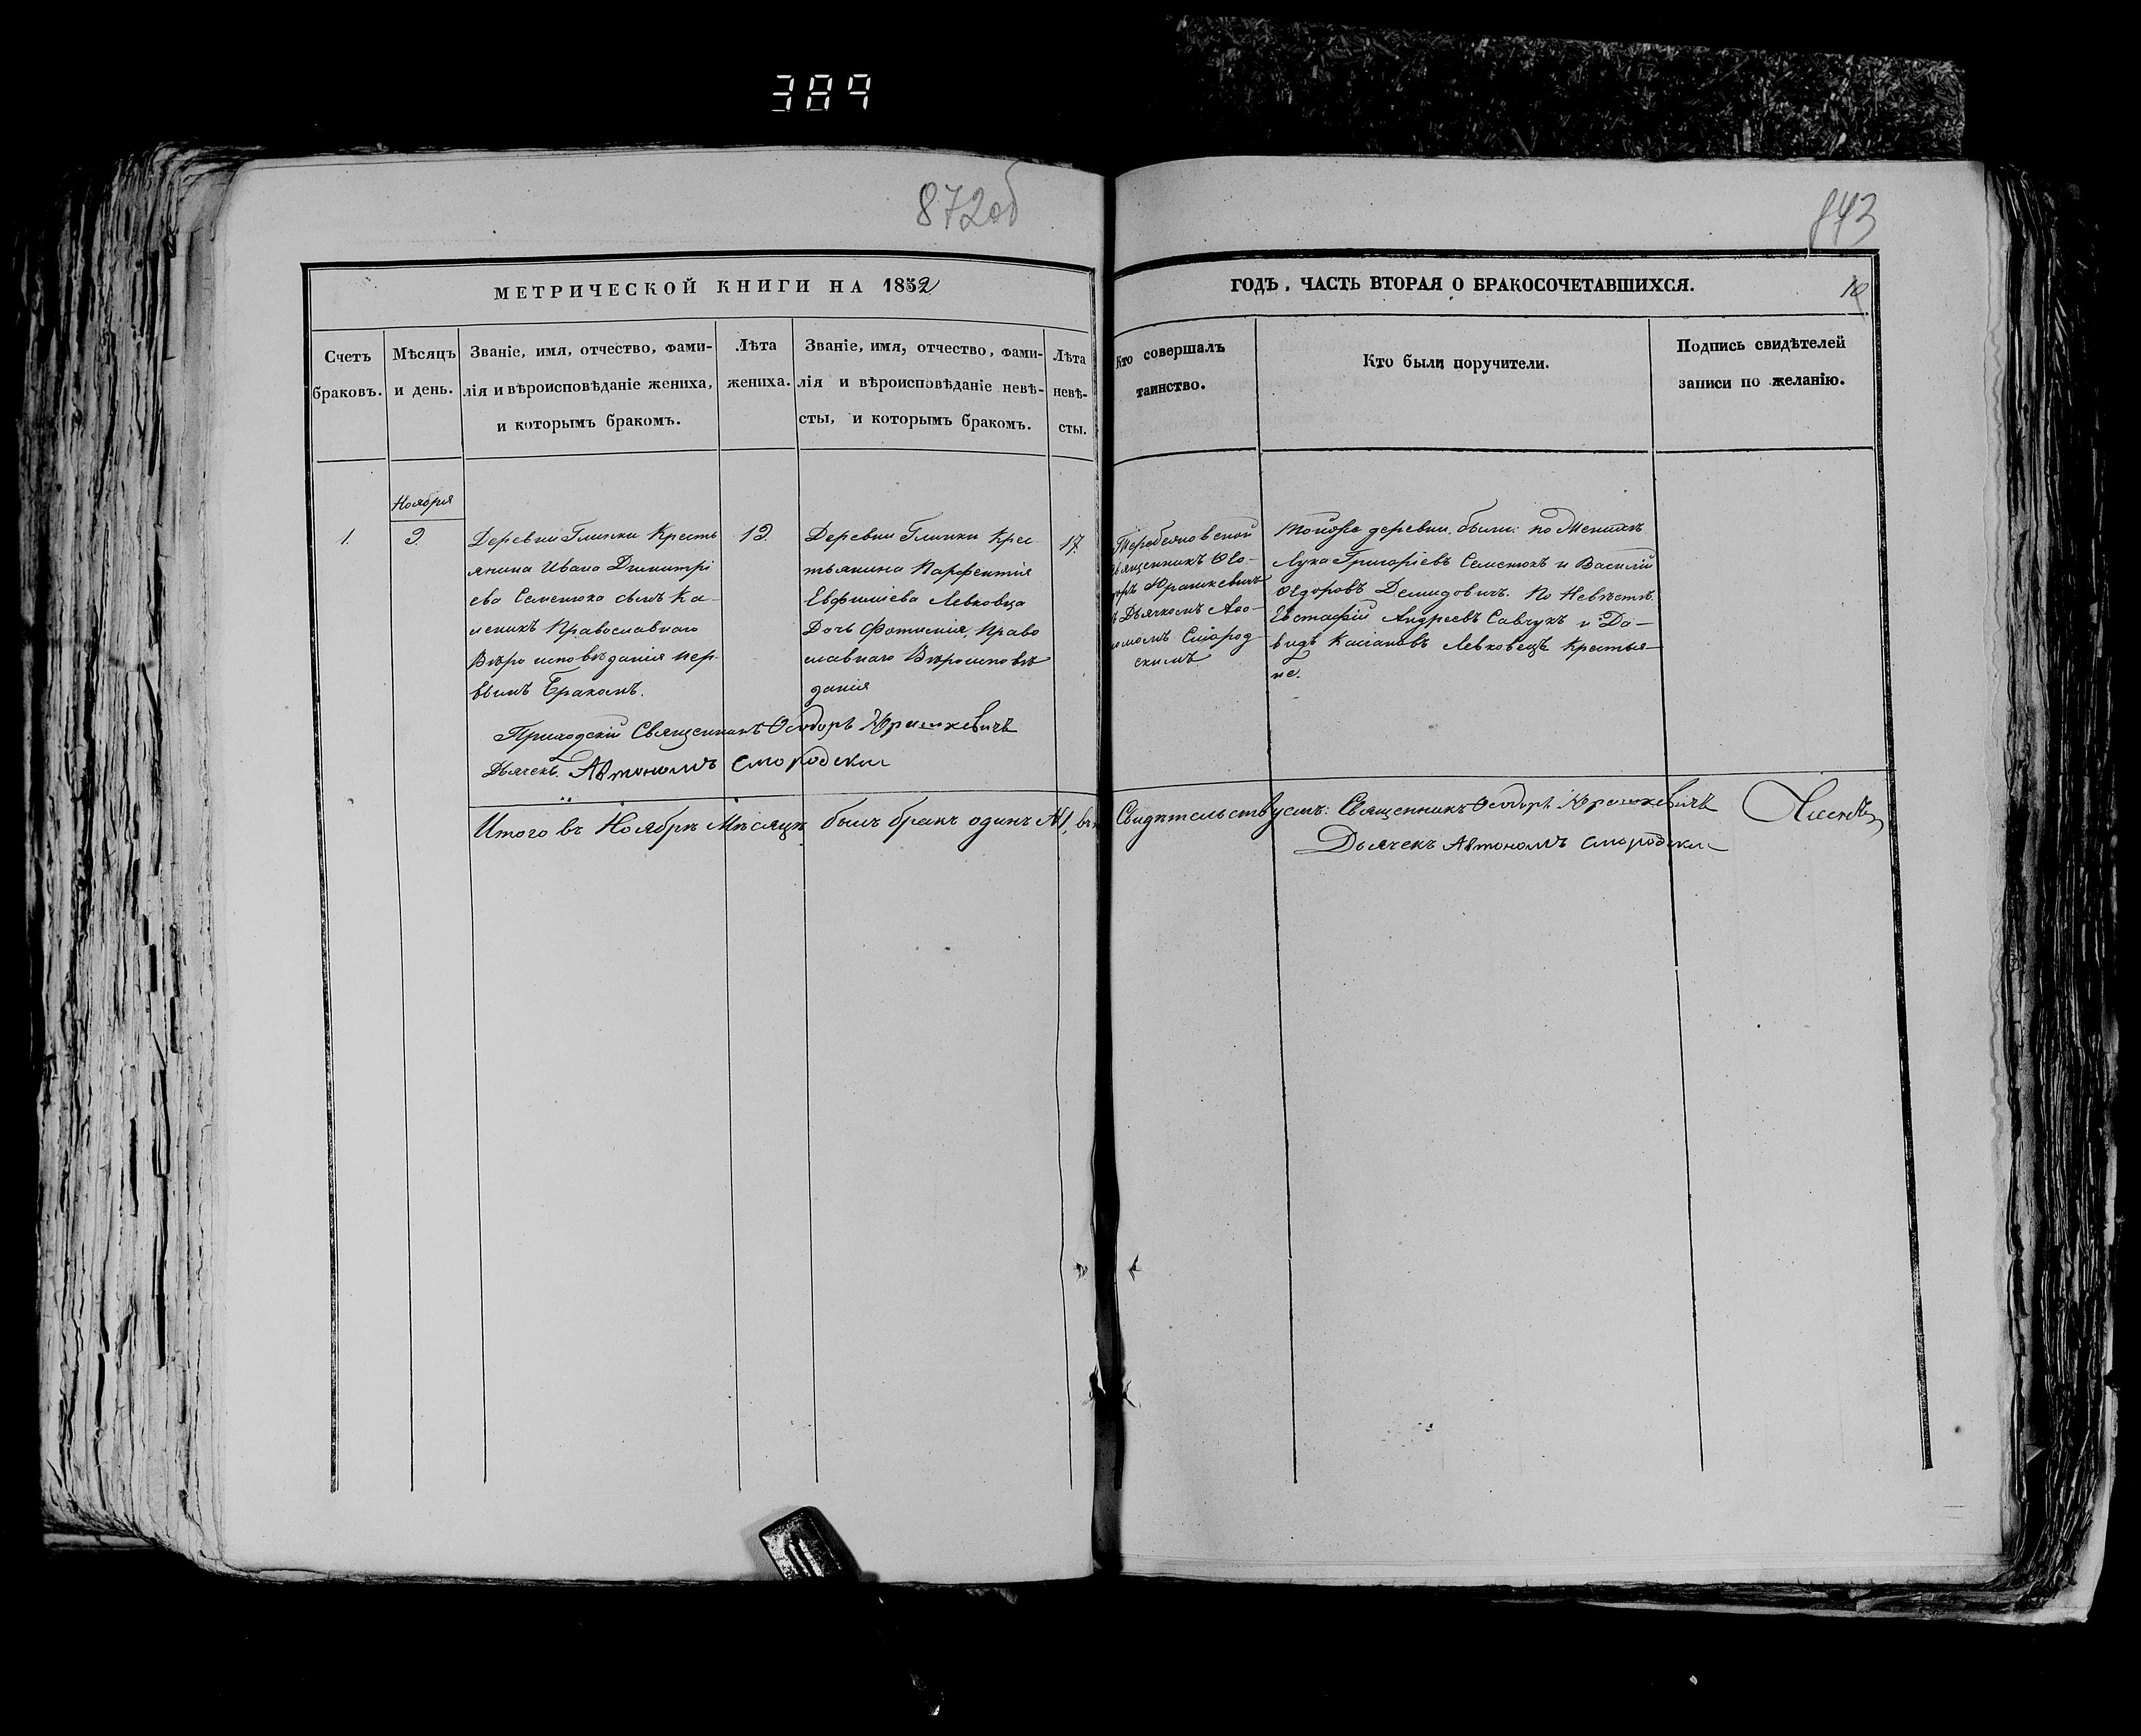 389
872об
843
МЕТРИЧЕСКОЙ КНИГИ НА 1852
ГОДЪ, ЧАСТЬ ВТОРАЯ О БРАКОСОЧЕТАВШИХСЯ.
10
Счетъ
браковъ.
Мѣсяцъ
и день.
Званіе, имя, отчество, фами-
лія и вѣроисповѣданіе жениха,
и которымъ бракомъ.
Лѣта
жениха.
Званіе, имя, отчество, фами-
лія и вѣроисповѣданіе невѣ-
сты, и которымъ бракомъ.
Лѣта
невѣ-
сты.
Кто совершалъ
таинство.
Кто были поручители.
Подпись свидѣтелей
записи по желанію.
Ноября
1.
2.
Деревни Глинки Кресть
янина Ивана Димитрі
ева Семенюка сынъ Ка-
леникъ Православнаго
Вѣроисповѣданія пер-
вымъ Бракомъ.
19.
Деревни Глинки Крес
тьянина Парфентія
Евфиміева Левковца
Дочь Фотинія, Право
славнаго Вѣроисповѣ
данія
17.
Теребежовской
Священникъ Ѳео-
доръ Юрашкевичъ
съ Дьячкомъ Авто-
номомъ Смород-
скимъ
Тойже деревни были: по Женихѣ
Лука Григоріевъ Семенюкъ и Василій
Ѳедоровъ Демидовичъ. По Невѣстѣ
Евстафій Андреевъ Савчукъ и Да-
видъ Касіановъ Левковецъ Крестья-
не.
Приходскій Священникъ Ѳеодоръ Юрашкевичъ
Дьячекъ Автономъ Смородски
Итого въ Ноябрѣ Мѣсяцѣ былъ бракъ одинъ №1, въ
Свидѣтельствуемъ: Священникъ Ѳеодоръ Юрашкевичъ
Дьячекъ Автономъ Смородски